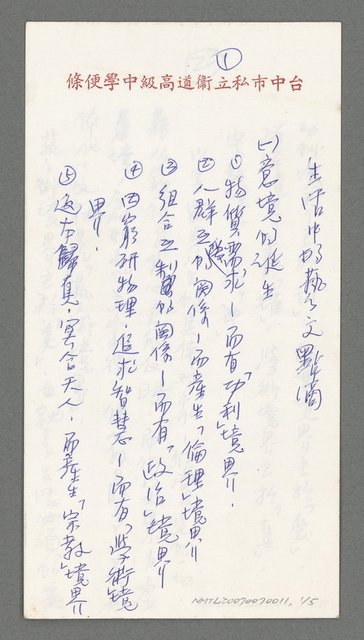 ①
台中市私立衛道高級中學便條
生活中的藝文點滴
(一)意境的誕生
①物質需求—而有「功利」境界．
②人群立的關係—而產生「倫理」境界
③組合立制的關係—而有「政治」境界
④因窮研物理．追求智慧—而有「學術」境
界．
⑤返本歸真．冥合天人．而產生「宗教」境界
NMTL20060060011, 1/5